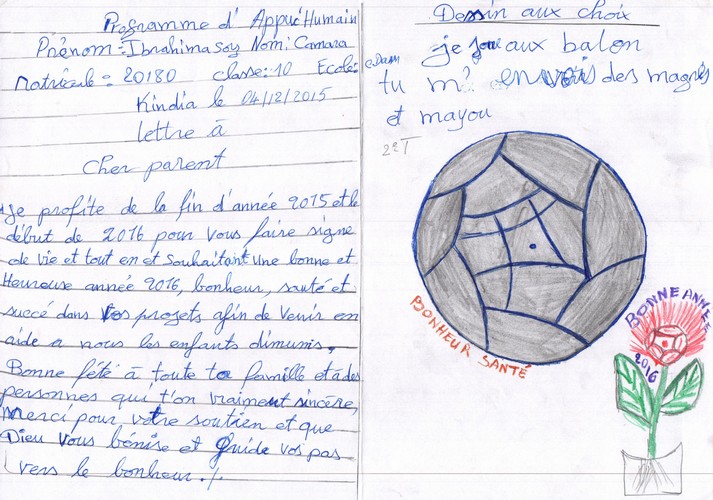 Programme d' Appui Humain
Prénom: Ibrahima say Nom: Camara
Matricule: 20180 classe: 10 Ecole:
Kindia le 04/12/2015
lettre à
Cher parent
Je profite de la fin d'année 2015 et le
début de 2016 pour vous faire signe
de vie et tout en et souhaitant une bonne et
Heureuse année 2016, bonheur, santé et
succé dans vos projets afin de venir en
aide a nous les enfants dimunis.
Bonne fété à toute ta famille et à des
personnes qui t'on vraiment sincère,
Merci pour votre soutien et que
Dieu vous bénise et guide vos pas
vers le bonheur./.
Dessin aux choix
je joue aux balon
tu m' envois des magnés
et mayou
BONHEUR SANTÉ
BONNE ANNEE
2016